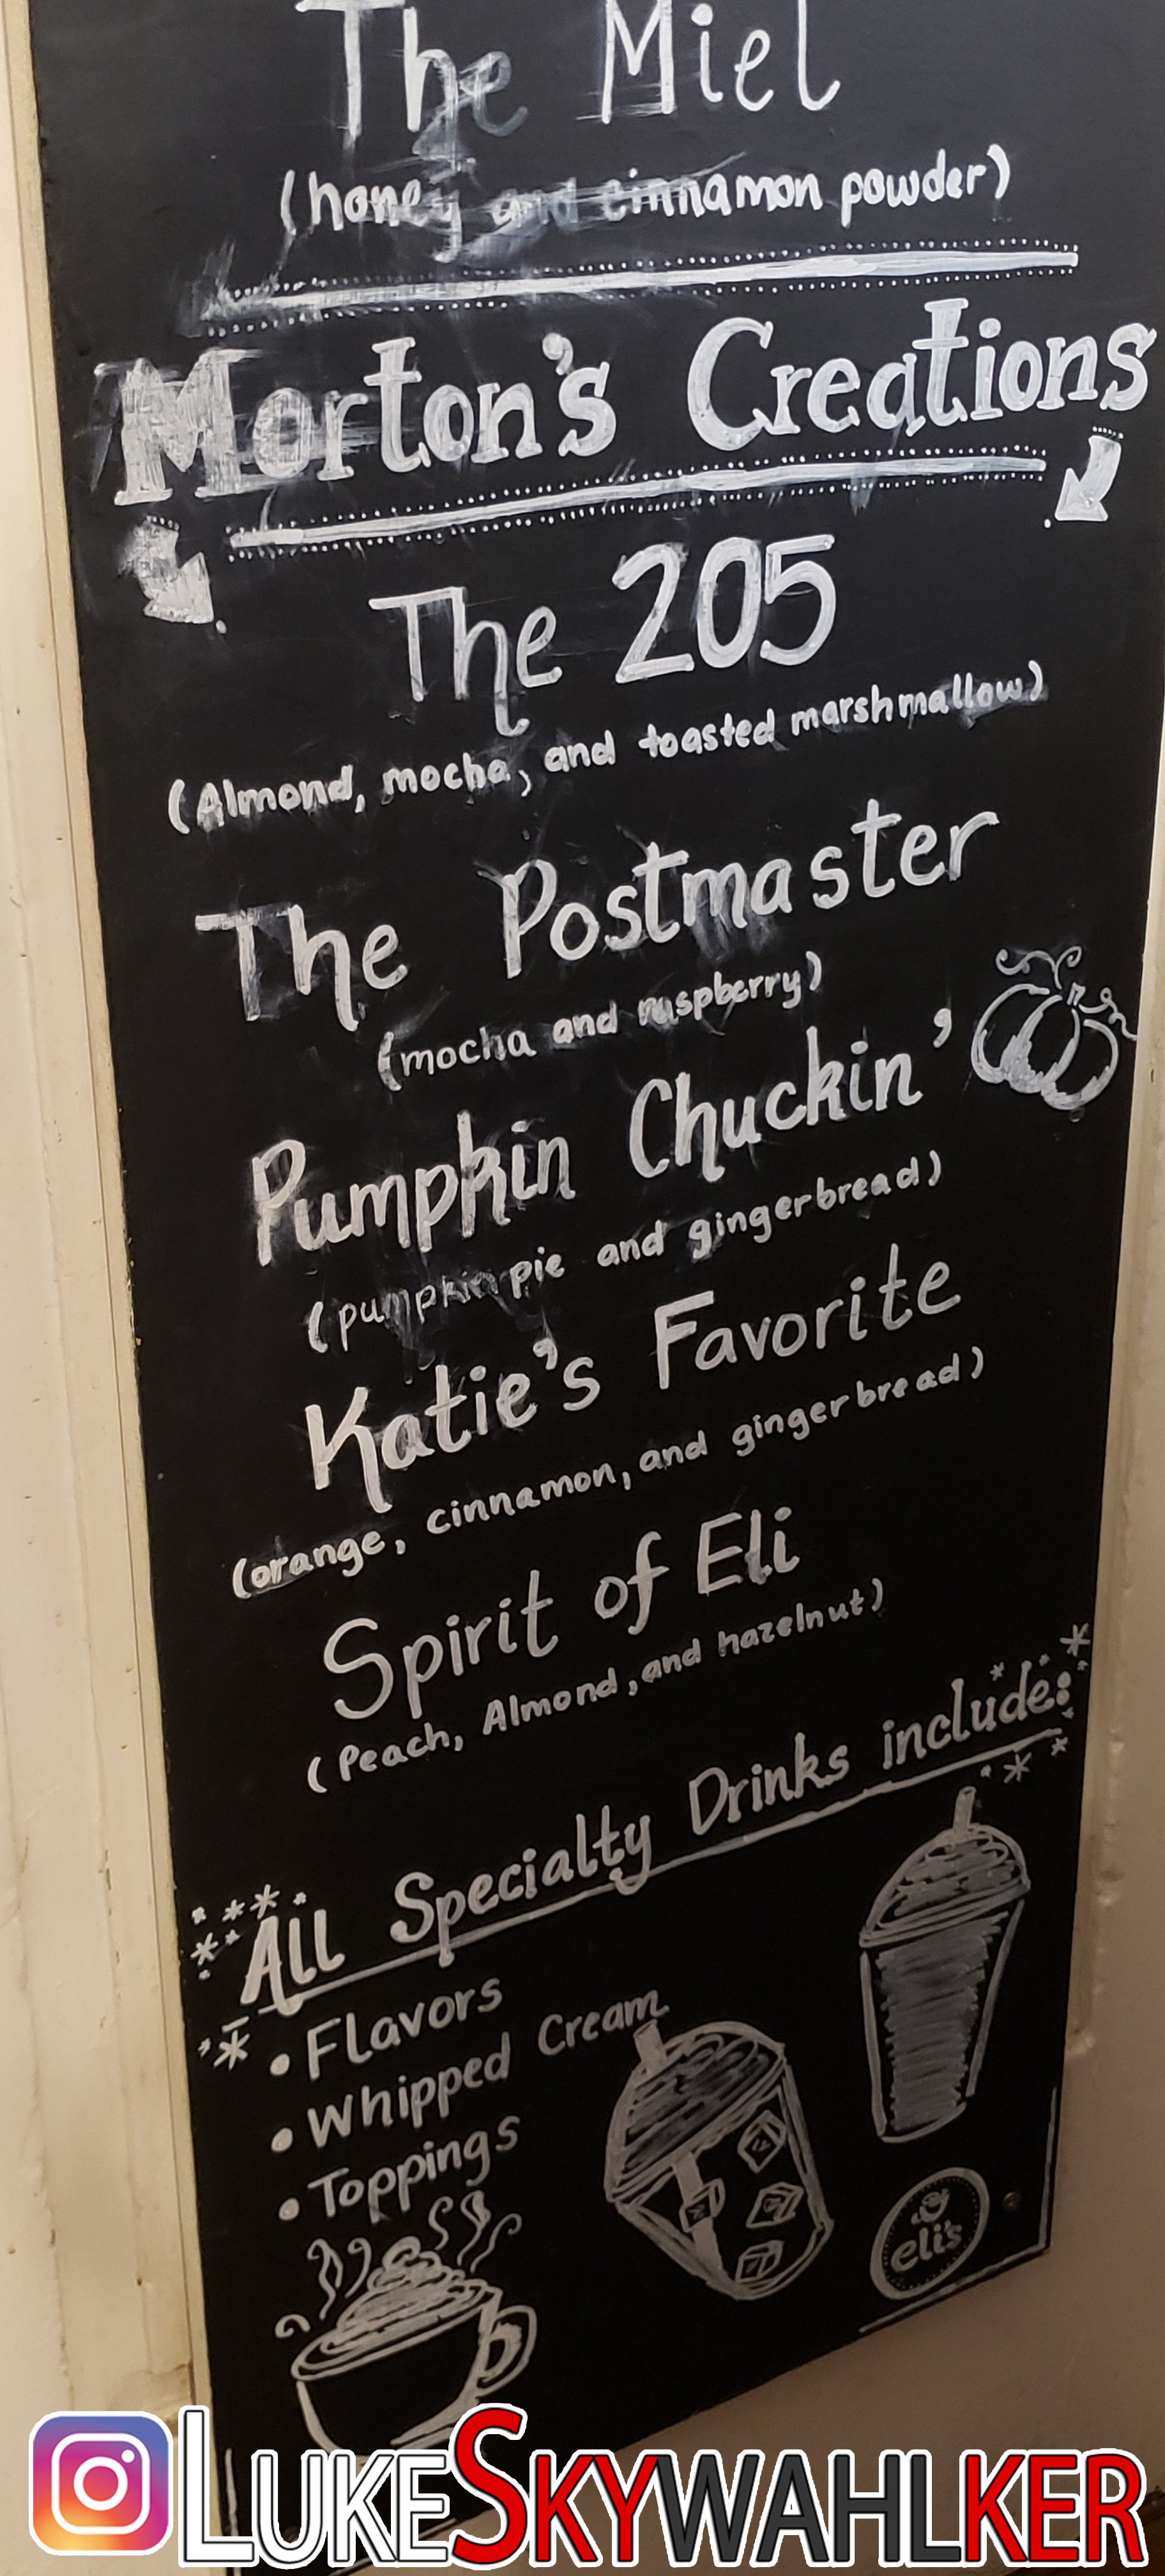 The Miel
(honey and cinnamon powder)
Morton's Creations
The 205
(Almond, mocha, and toasted marshmallow)
The Postmaster
(mocha and raspberry)
Pumpkin Chuckin'
(pumpkin pie and gingerbread)
Katie's Favorite
(orange, cinnamon, and gingerbread)
Spirit of Eli
(Peach, Almond, and hazelnut)
All Specialty Drinks include:
• Flavors
• Whipped Cream
• Toppings
eli's
LUKESKYWAHLKER